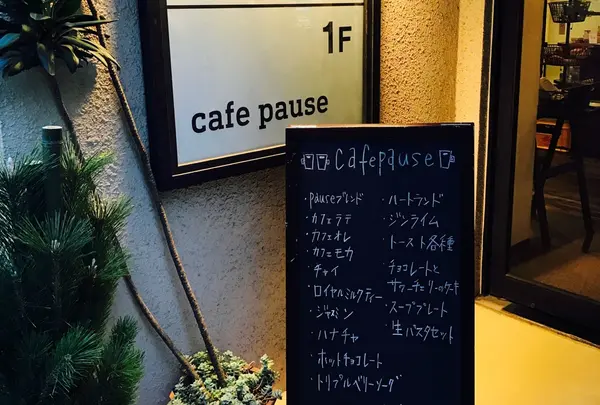 1F
cafe pause
Cafe pause
・pauseブレンド
・カフェラテ
・カフェオレ
・カフェモカ
・チャイ
・ロイヤルミルクティー
・ジャスミン
・ハナチャ
・ホットチョコレート
・トリプルベリーソーダ
・ハートランド
・ジンライム
・トースト各種
・チョコレートと
サワーチェリーのケーキ
・スーププレート
・生パスタセット